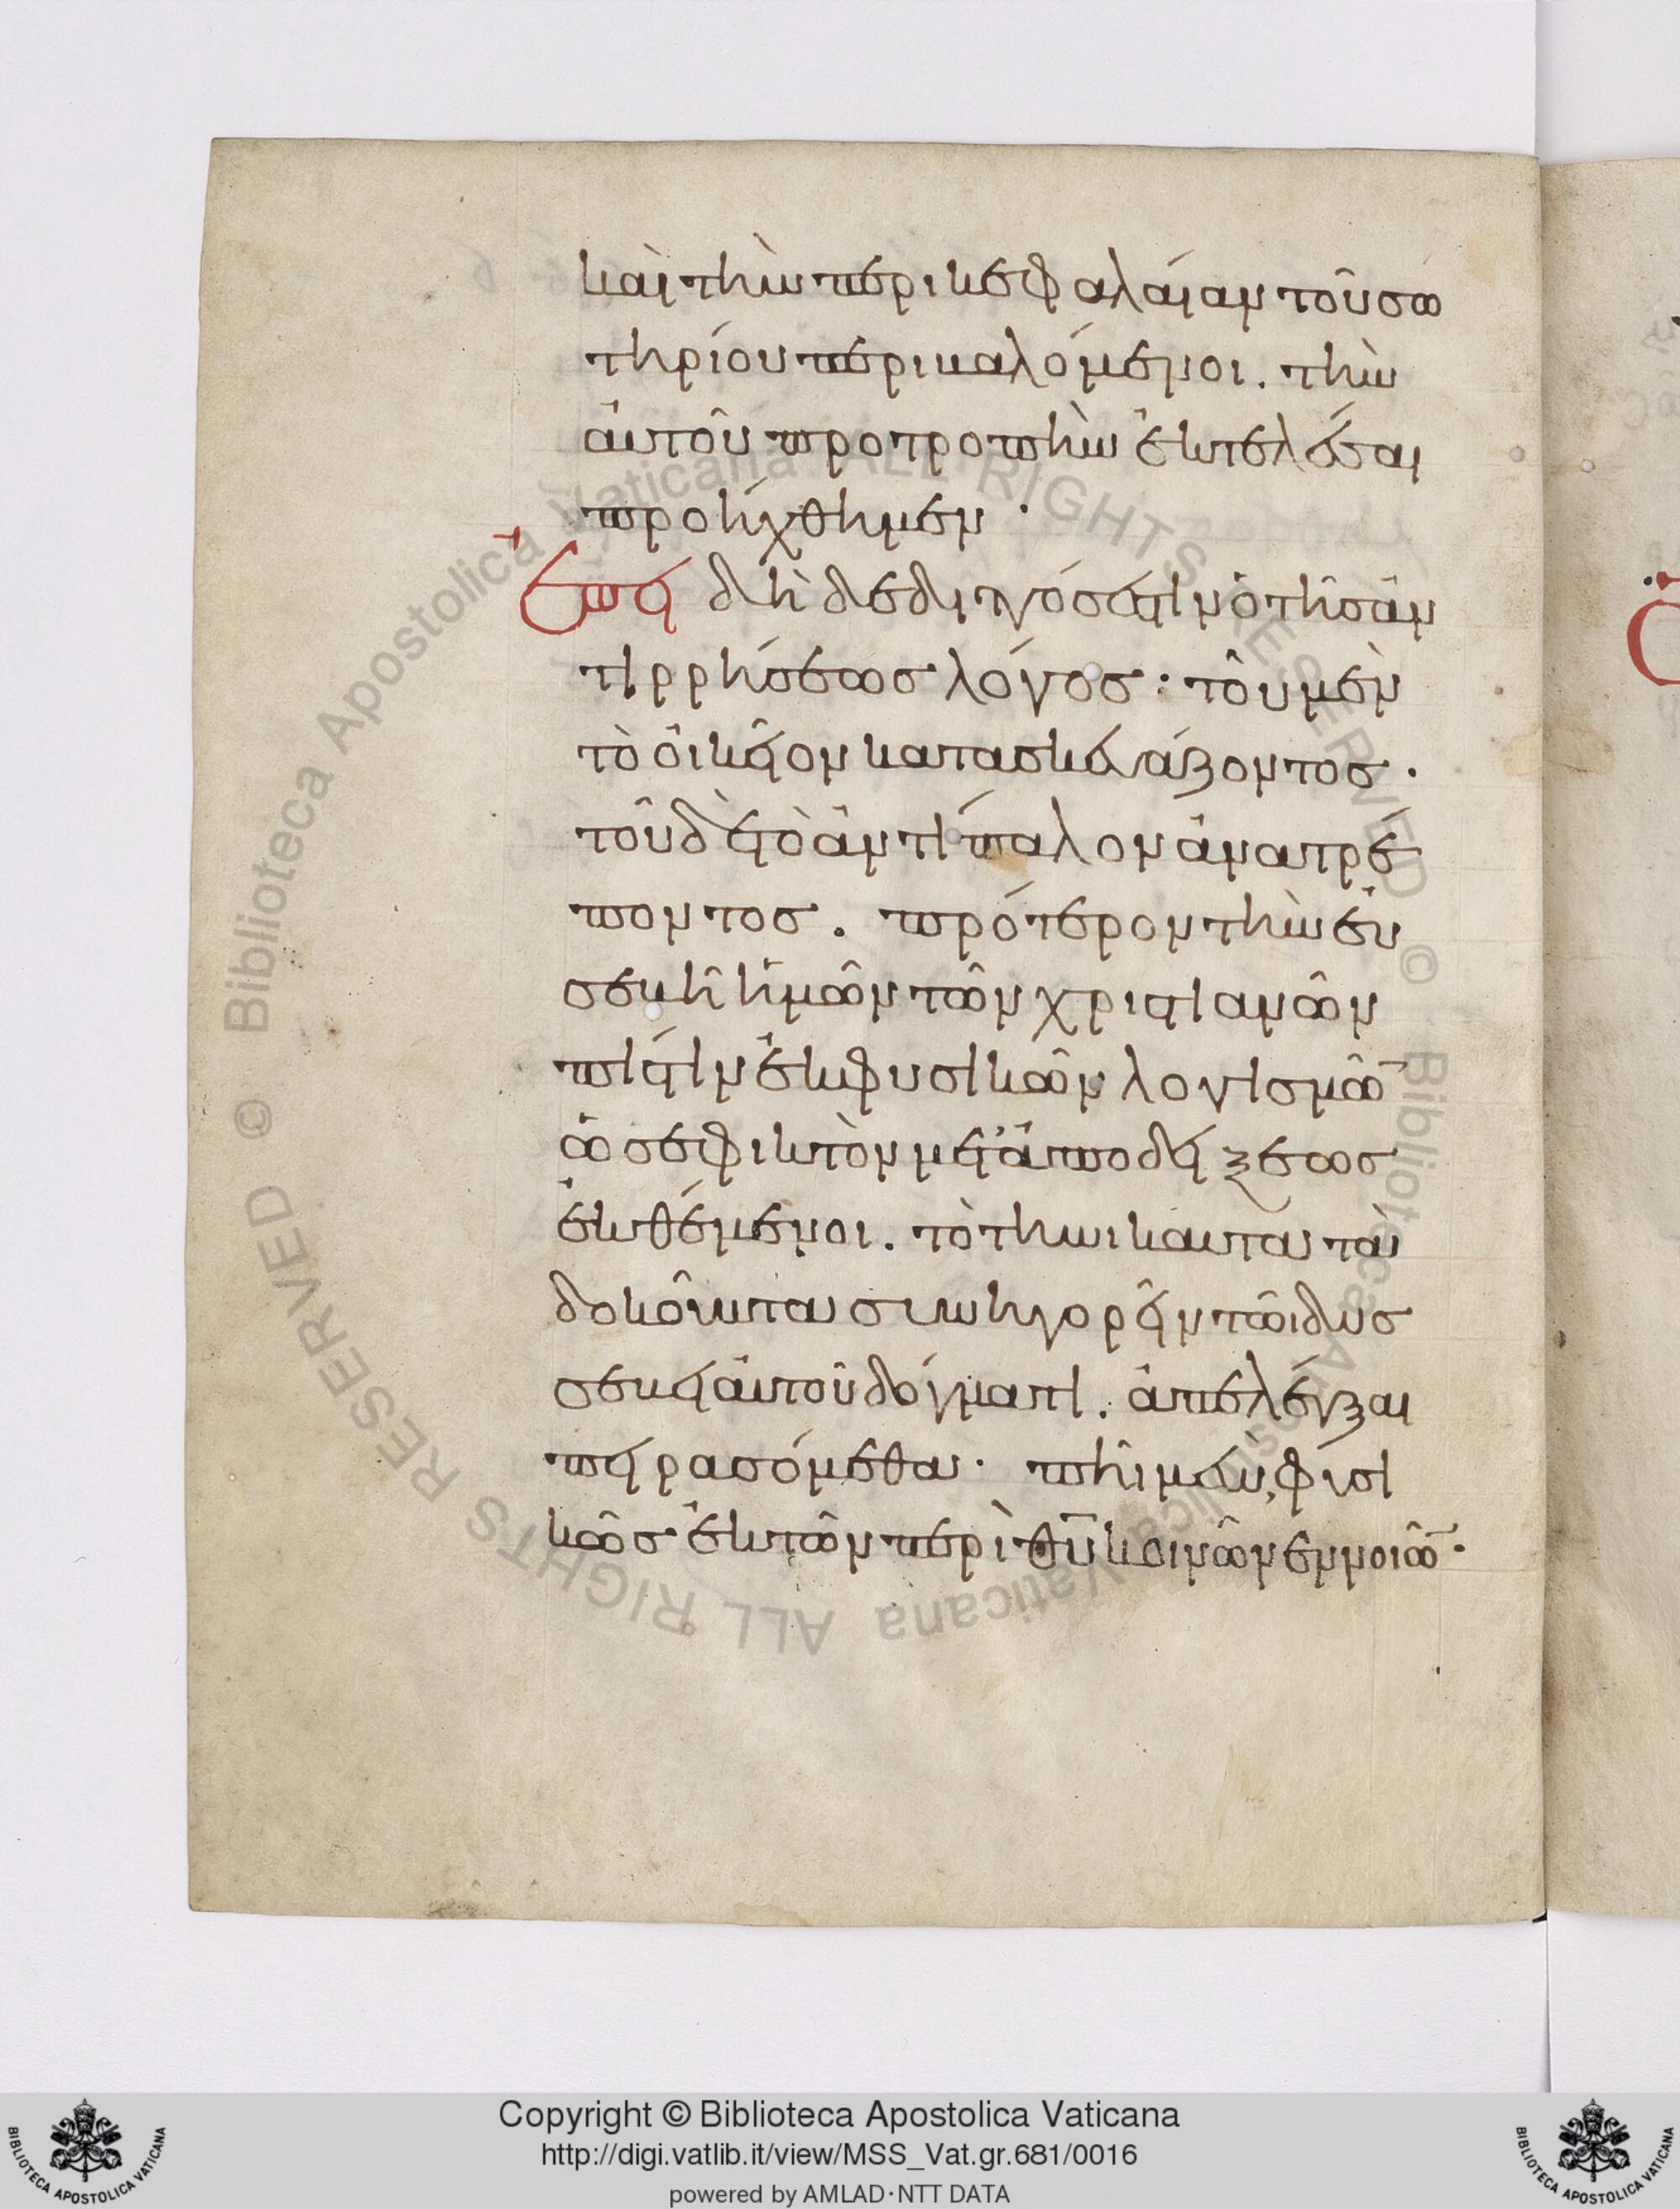 καὶ τὴν περικεφαλαίαν τοῦ σω
τηρίου περικαλόμενοι. τὴν
αὐτοῦ προτροπὴν ἐκτελέσαι
προήχθημεν·
Ἐπεὶ δὲ δὴ διττός ἐστιν ὁ τῆς ἀν
τιρρήσεως λόγος: τοῦ μὲν
τὸ οἰκεῖον κατασκευάζοντος·
τοῦ δὲ τὸ ἀντίπαλον ἀνατρέ
ποντος. πρότερον τὴν εὐ
σεβῆ ἡμῶν τῶν χριστιανῶν
πίστιν ἐκ φυσικῶν λογισμῶ
ὡς ἐφικτὸν μετ' ἀποδείξεως
ἐκθέμενοι. τὸ τηνικαῦτα τὰ
δοκοῦντα συνηγορεῖν τῶι δυσ
σεβεῖ αὐτοῦ δόγματι. ἀπελέγξαι
πειρασόμεθα· πῆι μὲν, φυσι
κῶς ἐκ τῶν περὶ θυ κοινῶν εννοιῶ·
Copyright © Biblioteca Apostolica Vaticana
http://digi.vatlib.it/view/MSS_Vat.gr.681/0016
powered by AMLAD·NTT DATA
BIBLIOTECA APOSTOLICA VATICANA
BIBLIOTECA APOSTOLICA VATICANA
© Biblioteca Apostolica Vaticana ALL RIGHTS RESERVED © Biblioteca Apostolica Vaticana ALL RIGHTS RESERVED